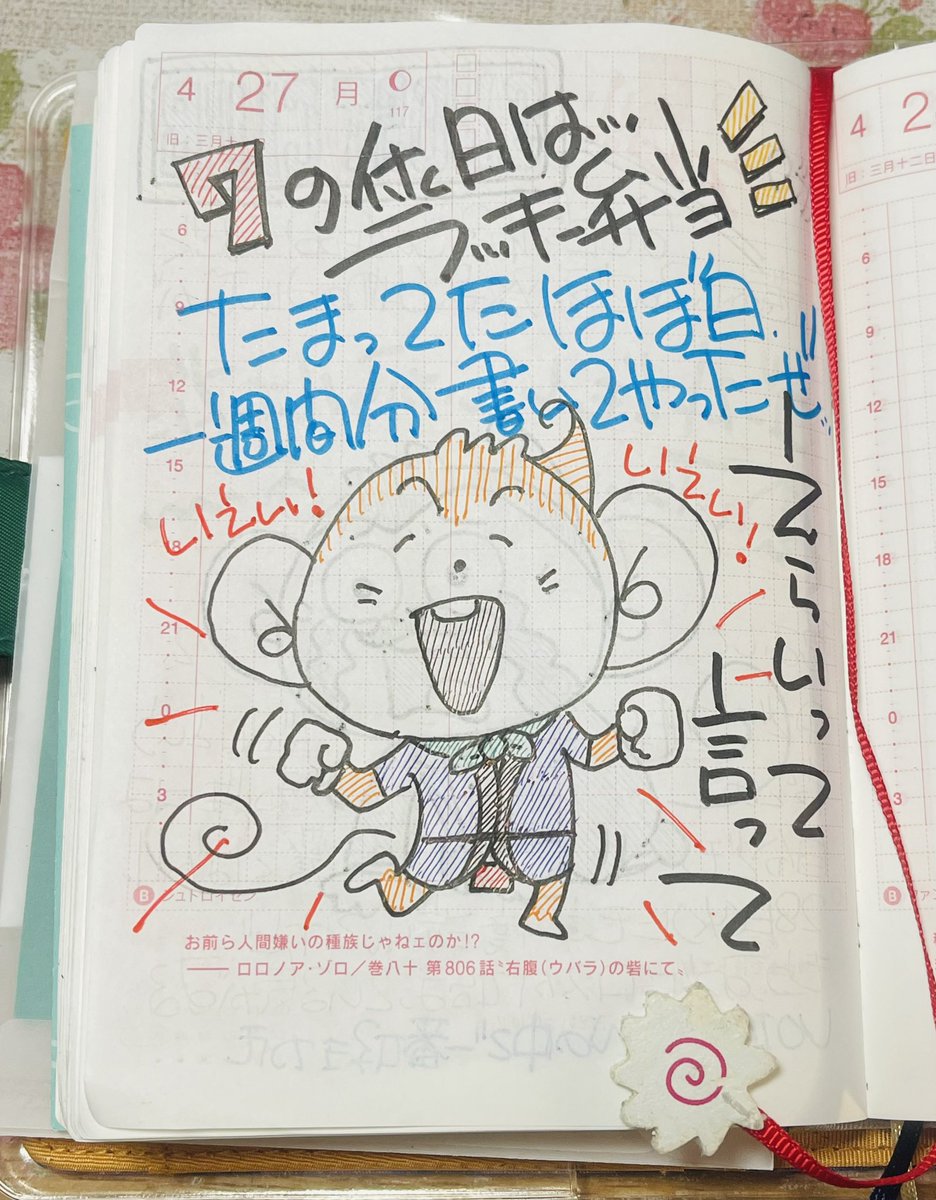 4 27 月
117
旧:三月十
7の付く日は…
ラッキー弁当
たまってたほぼ日.
一週間分書いてやったぜ!!
いえい!
いえい!
えらいって
言って
6
9
12
15
18
21
0
3
B シュトロイゼン
お前ら人間嫌いの種族じゃねェのか!?
―― ロロノア・ゾロ/巻八十 第806話〝右腹(ウバラ)の砦にて〟
4 2
旧:三月十二日
6
9
12
15
18
21
0
3
B